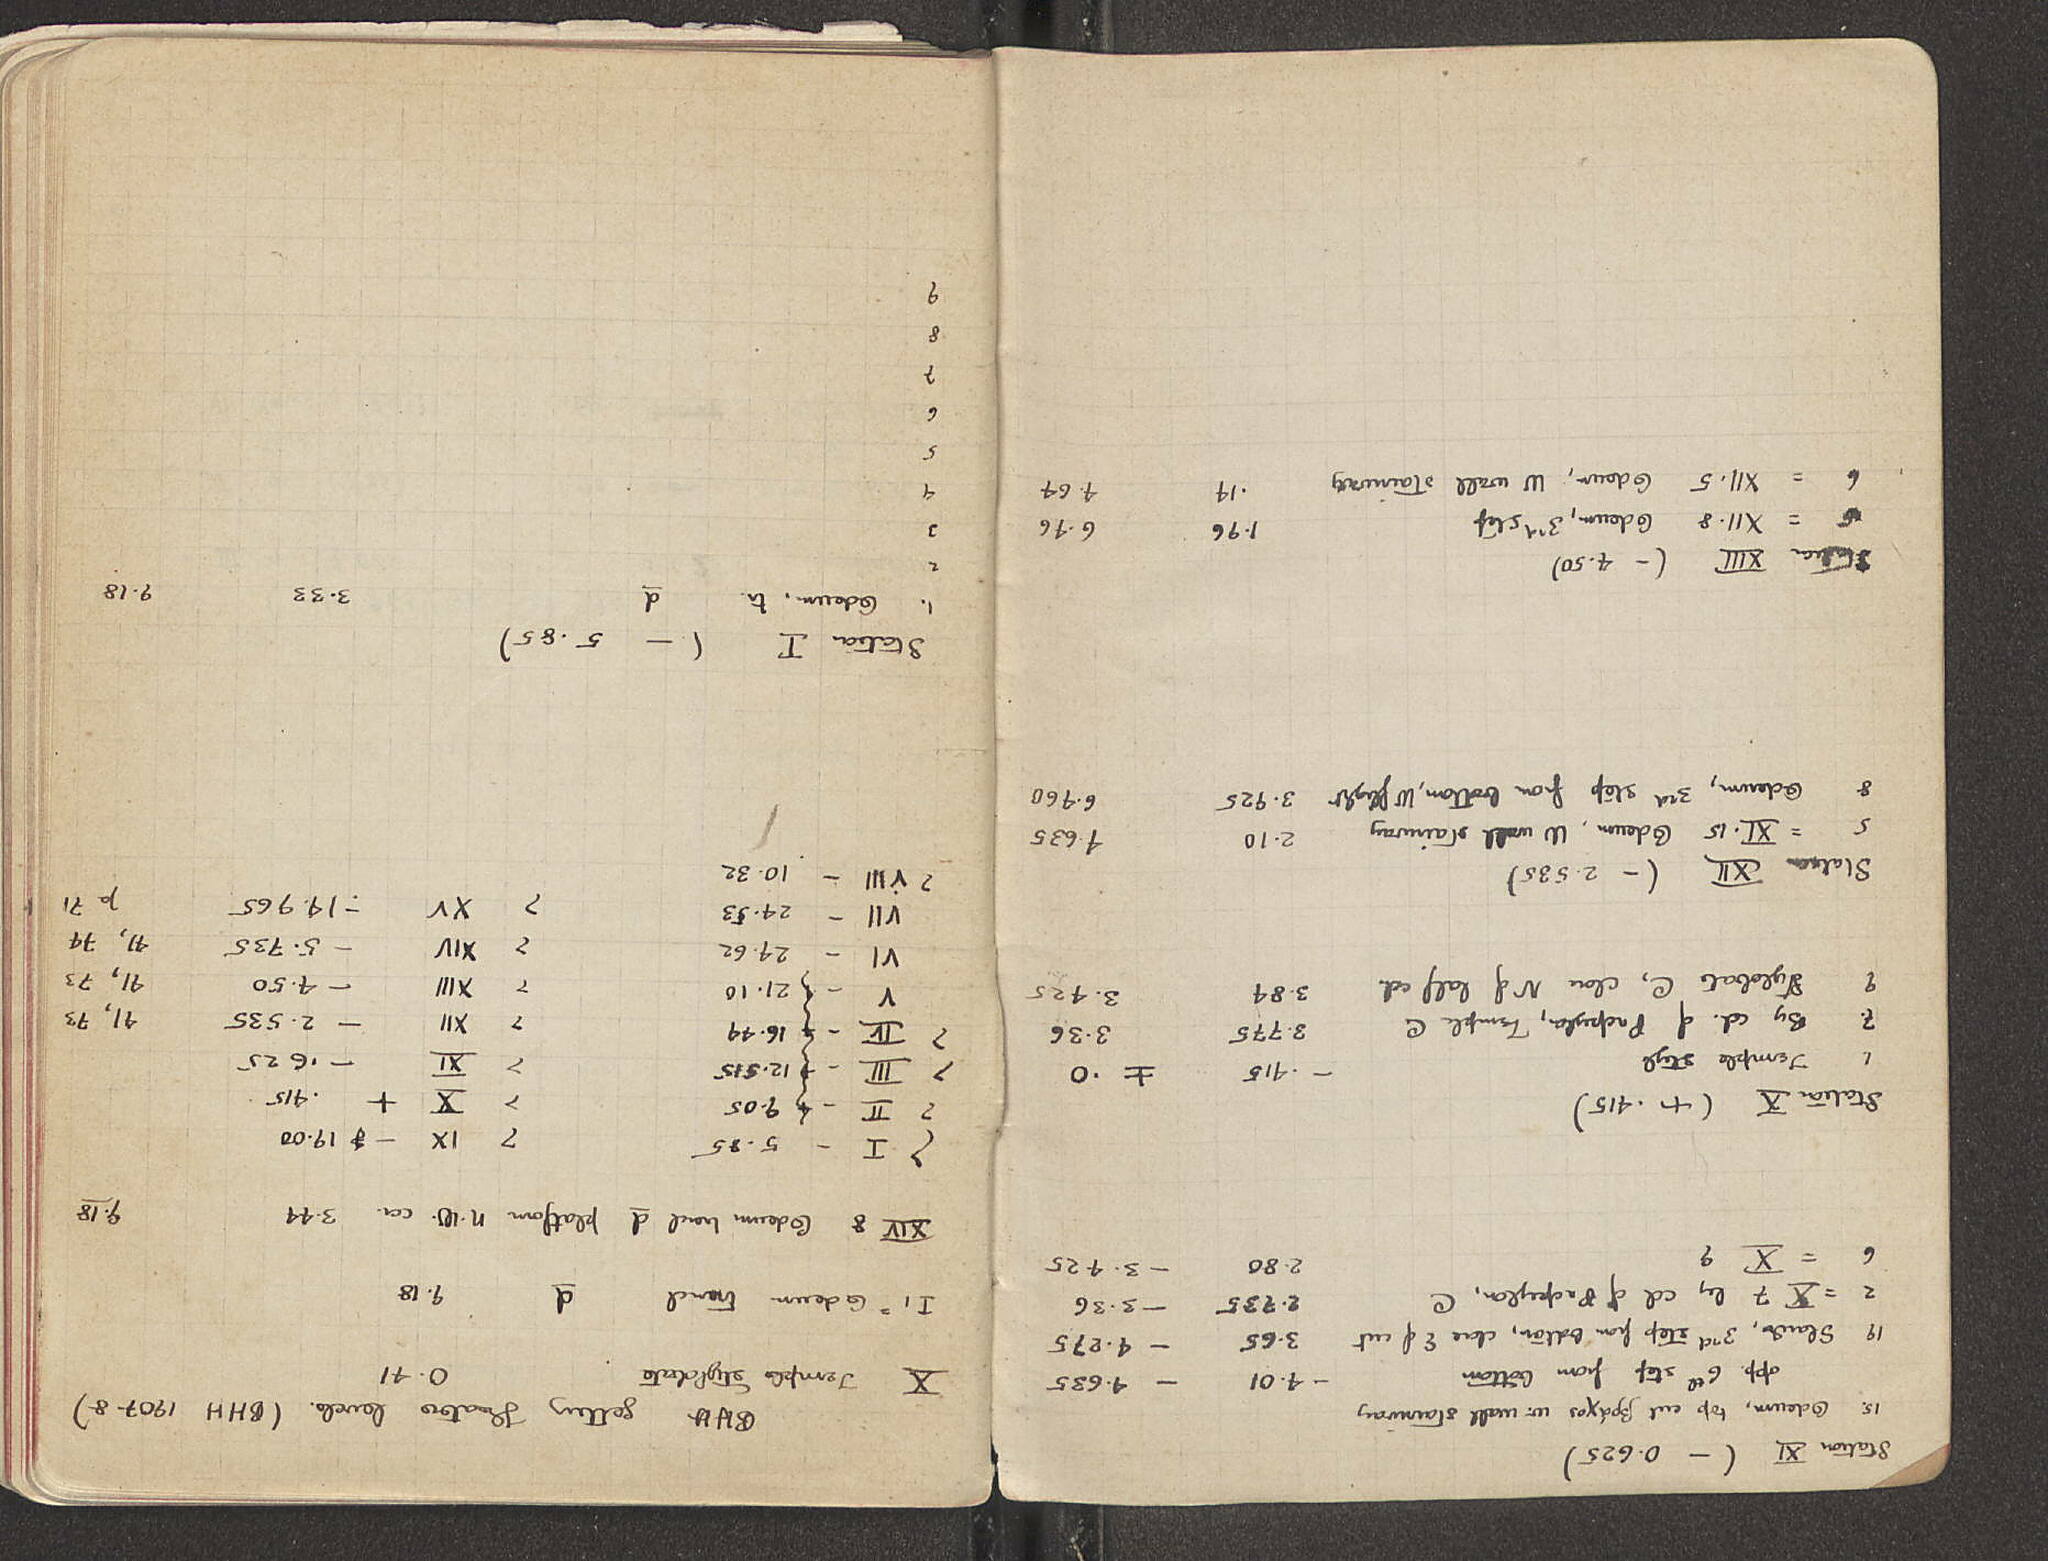 Station XI (– 0.625)
15. Odeum, top cut βράχος w. wall stairway
opp. 6th step from bottom – 4.01 – 4.635
19 3rd step from bottom, close E of cut 3.65 – 4.275
2 = X 7 by col of C 2.735 – 3.36
6 = X 9 2.80 – 3.425
Station X (+ .415)
1 Temple styl – .415 ± .0
7. By col. of Temple C 3.775 3.36
9 Stylobate C, close N of half col. 3.84 3.425
Station XII (– 2.535)
5 = XI.15 Odeum, W wall stairway 2.10 4.635
8 Odeum, 3rd step from bottom, W flight 3.925 6.460
Station XIII (– 4.50)
5 = XII.8 Odeum, 3rd step 1.96 6.46
6 = XII.5 Odeum, W wall stairway .14 4.64
BHH getting Theatre levels. (BHH 1907-8)
X Temple Stylobate 0.41
I1 = Odeum trench d 9.18
XIV 8 Odeum trench d platform N.W. cor. 3.44 9.18
? I – 5.85 ? IX – 19.00
? II – 9.05 ? X + .415
? III – 12.515 ? XI – .625
? IV – 16.44 ? XII – 2.535 41, 73
V – 21.10 ? XIII – 4.50 41, 73
VI – 24.62 ? XIV – 5.735 41, 74
VII – 24.53 ? XV – 14.965 p 71
? VIII – 10.32
Station I (– 5.85)
1. Odeum, tr. d 3.33 9.18
2
3
4
5
6
7
8
9